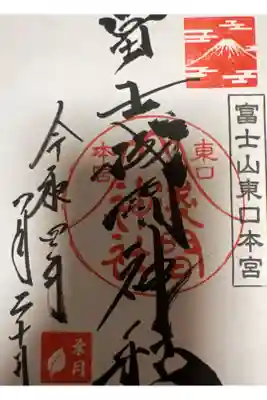 富士山東口本宮
冨士浅間神社
東口
本宮
浅間
神社
令和四年
八月二十日
葉月